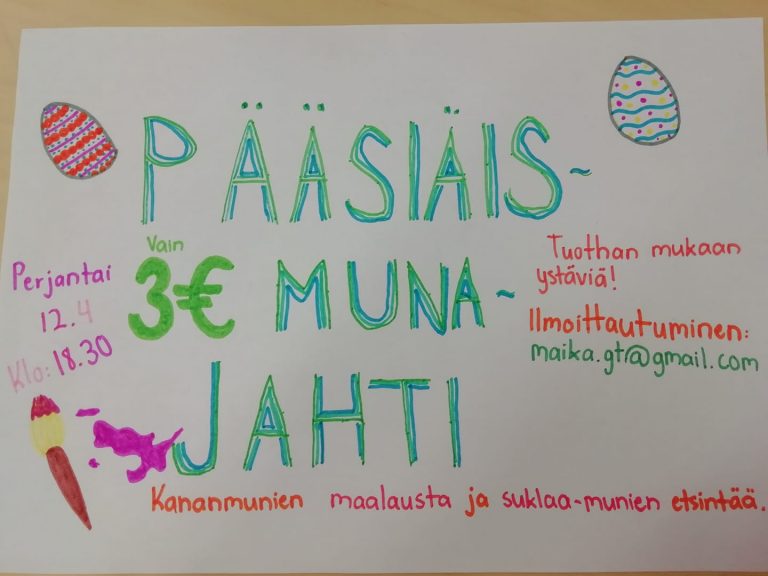 PÄÄSIÄIS-
MUNA-
JAHTI
Vain
3€
Perjantai
12.4
Klo: 18.30
Tuothan mukaan
ystäviä!
Ilmoittautuminen:
maika.gt@gmail.com
Kananmunien maalausta ja suklaa-munien etsintää.